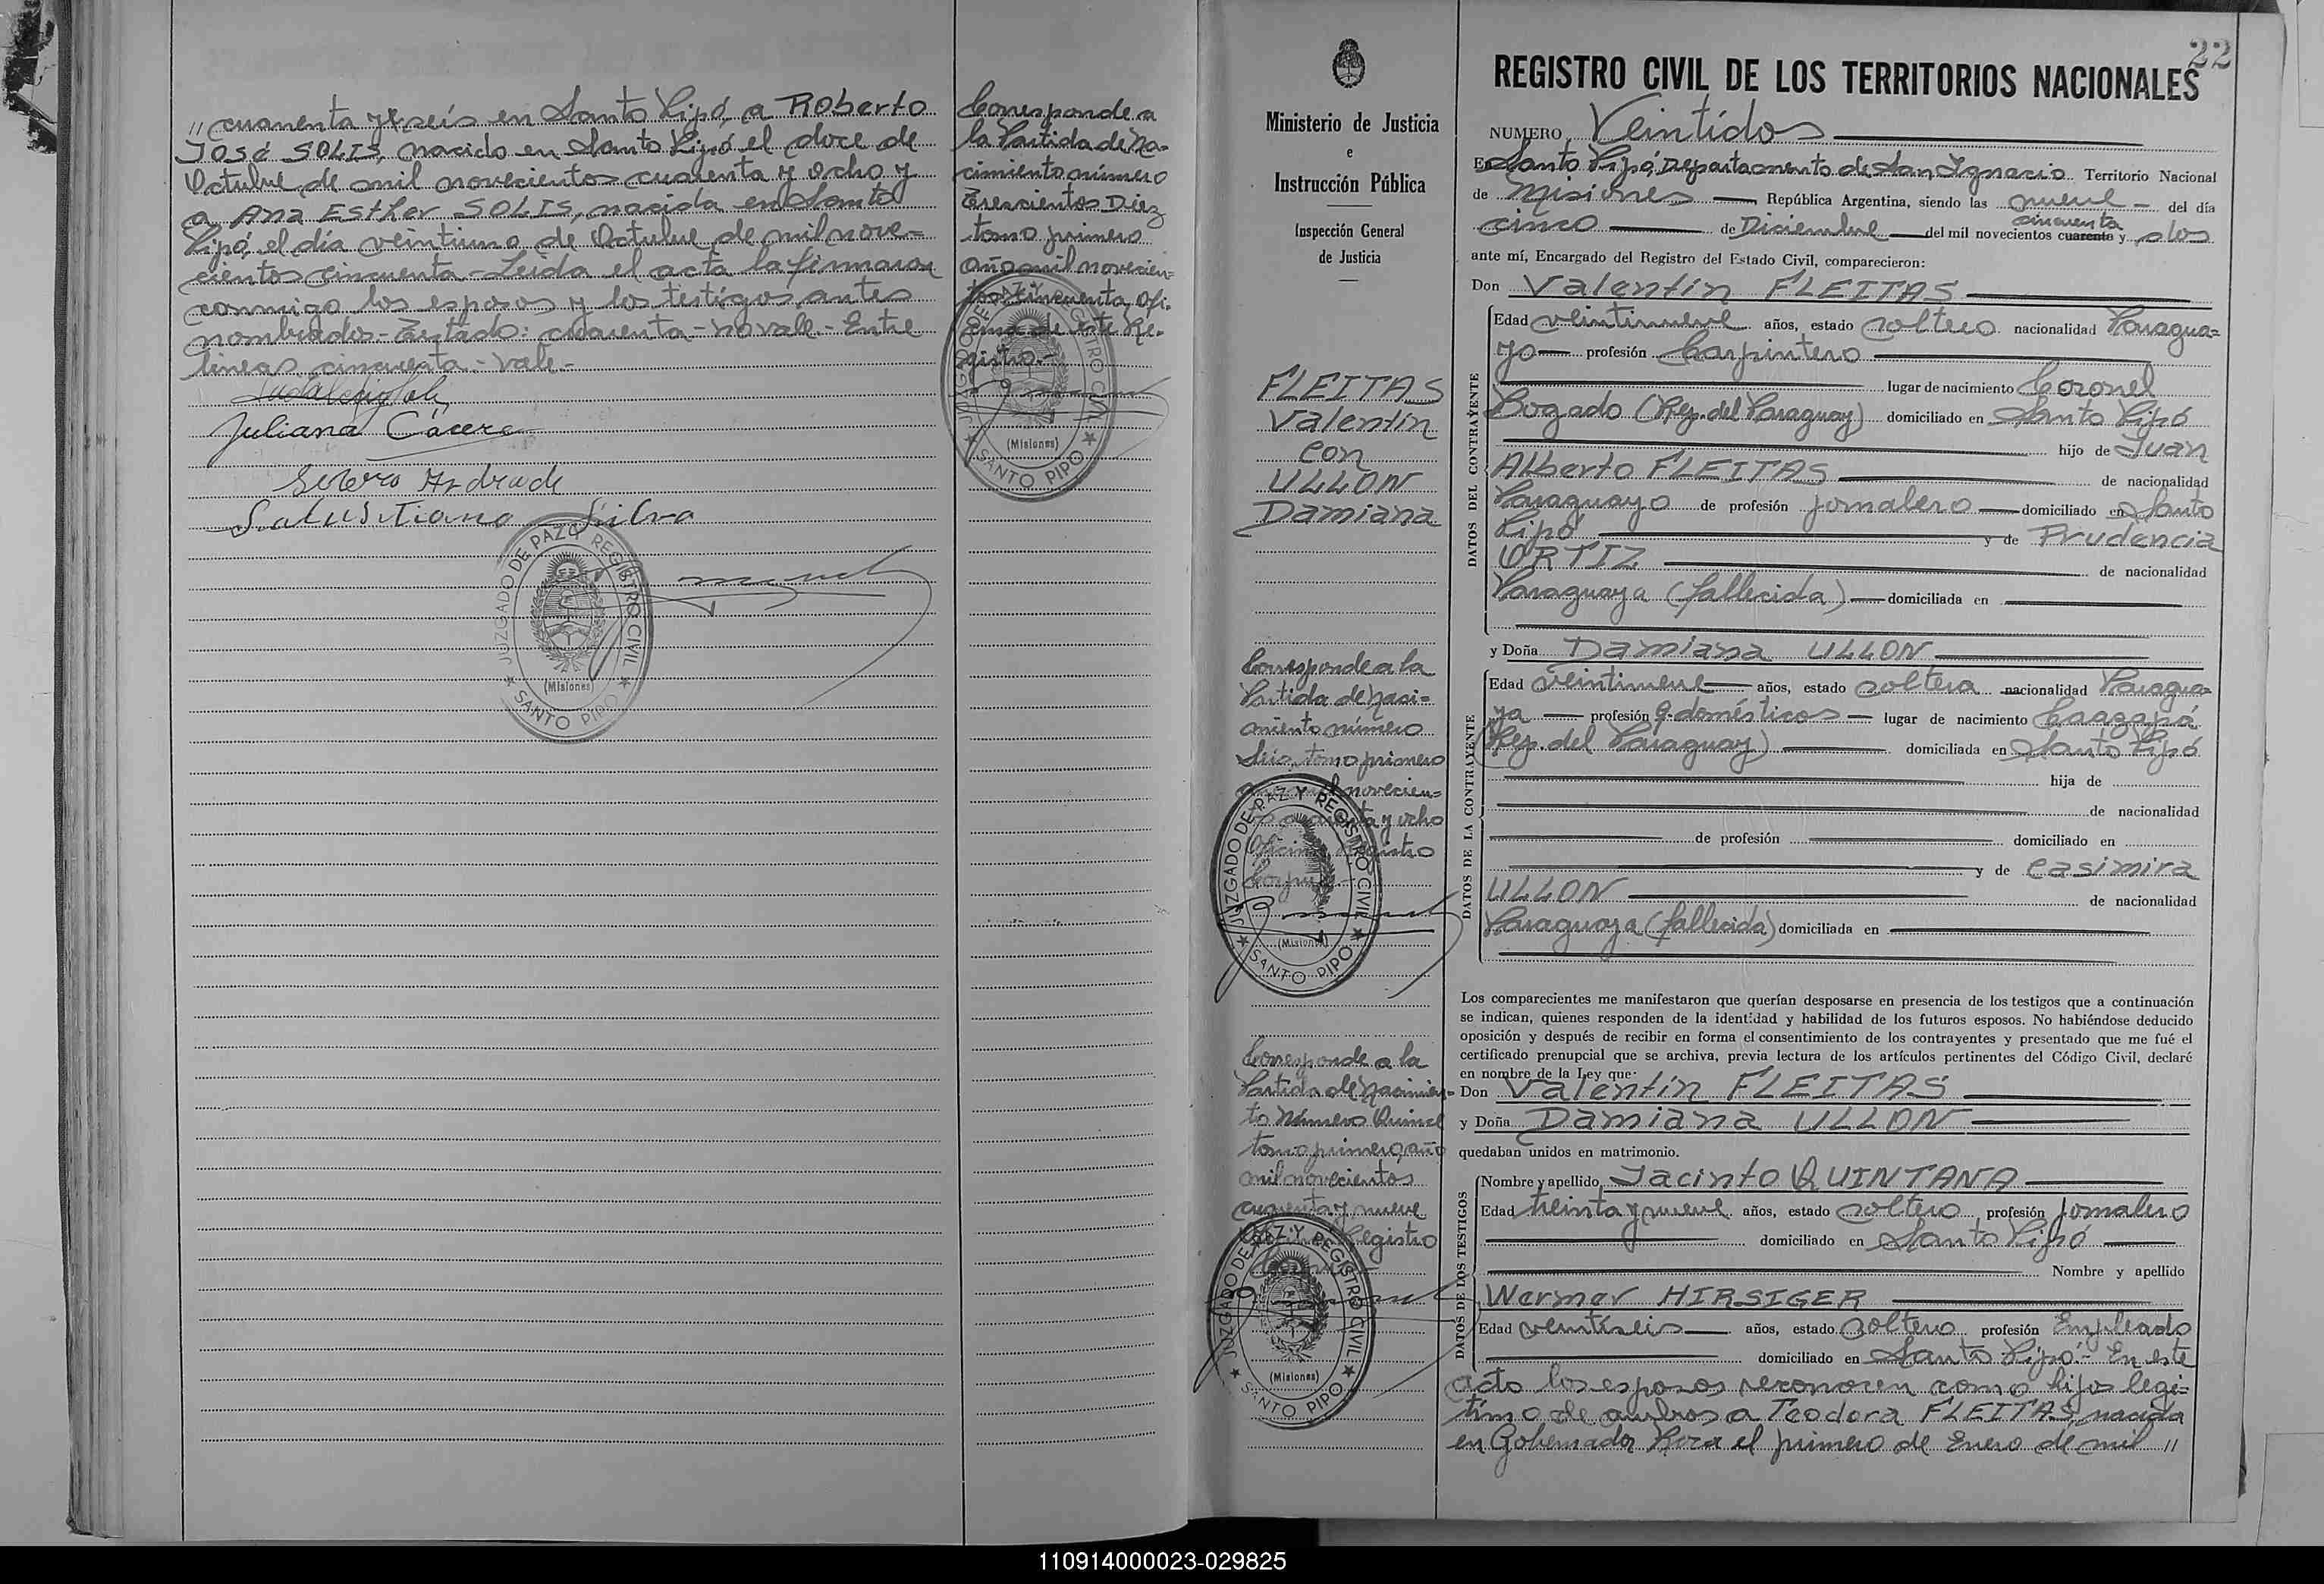 " cuarenta y seis en Santo Pipó, a Roberto
José SOLIS, nacido en Santo Pipó el doce de
Octubre de mil novecientos cuarenta y ocho y
a Ana Esther SOLIS, nacida en Santo
Pipó, el día veintiuno de Octubre de mil nove=
cientos cincuenta - Leída el acta la firmaron
conmigo los esposos y los testigos antes
nombrados - Testado: cuarenta - no vale - Entre
líneas cincuenta - vale -
Juliana Cácere
Severo Andrade
Salustiano Silva
JUZGADO DE PAZ Y REGISTRO CIVIL
(Misiones)
SANTO PIPO
Corresponde a
la Partida de Na=
cimiento número
Trescientos Diez
tomo primero
año mil novecien=
tos cincuenta, Ofi-
cina de este Re-
gistro.-
JUZGADO DE PAZ Y REGISTRO CIVIL
(Misiones)
SANTO PIPO
Ministerio de Justicia
e
Instrucción Pública
Inspección General
de Justicia
FLEITAS
Valentín
con
ULLON
Damiana
Corresponde a la
Partida de Naci=
miento número
Seis, tomo primero
novecien=
y ocho
Oficina Registro
Corpus
JUZGADO DE PAZ Y REGISTRO CIVIL
(Misiones)
SANTO PIPO
Corresponde a la
Partida de Nacimien-
to Número Quince
tomo primero, año
mil novecientos
cuarenta y nueve
Registro
JUZGADO DE PAZ Y REGISTRO CIVIL
(Misiones)
SANTO PIPO
22
REGISTRO CIVIL DE LOS TERRITORIOS NACIONALES
NUMERO Veintidos
En Santo Pipó, Departamento de San Ignacio Territorio Nacional
de Misiones República Argentina, siendo las nueve - del día
cincuenta
cinco de Diciembre del mil novecientos cuarenta y dos
ante mí, Encargado del Registro del Estado Civil, comparecieron:
Don Valentín FLEITAS
DATOS DEL CONTRAYENTE
Edad veintinueve años, estado soltero nacionalidad Paragua=
yo profesión Carpintero
lugar de nacimiento Coronel
Bogado (Rep. del Paraguay) domiciliado en Santo Pipó
hijo de Juan
Alberto FLEITAS de nacionalidad
Paraguayo de profesión jornalero domiciliado en Santo
Pipó y de Prudencia
ORTIZ de nacionalidad
Paraguaya (fallecida) domiciliada en
y Doña Damiana ULLON
DATOS DE LA CONTRAYENTE
Edad veintinueve años, estado soltera nacionalidad Paragua=
ya profesión q. domésticos lugar de nacimiento Caazapá
(Rep. del Paraguay) domiciliada en Santo Pipó
hija de
de nacionalidad
de profesión domiciliado en
y de Casimira
ULLON de nacionalidad
Paraguaya (fallecida) domiciliada en
Los comparecientes me manifestaron que querían desposarse en presencia de los testigos que a continuación
se indican, quienes responden de la identidad y habilidad de los futuros esposos. No habiéndose deducido
oposición y después de recibir en forma el consentimiento de los contrayentes y presentado que me fué el
certificado prenupcial que se archiva, previa lectura de los artículos pertinentes del Código Civil, declaré
en nombre de la Ley que:
Don Valentín FLEITAS
y Doña Damiana ULLON
quedaban unidos en matrimonio.
DATOS DE LOS TESTIGOS
Nombre y apellido Jacinto QUINTANA
Edad treinta y nueve años, estado soltero profesión jornalero
domiciliado en Santo Pipó
Nombre y apellido
Werner HIRSIGER
Edad veintiseis años, estado soltero profesión Empleado
domiciliado en Santo Pipó.- En este
acto los esposos reconocen como hijos legí=
timo de ambos a Teodora FLEITAS, nacida
en Gobernador Roca el primero de Enero de mil "
110914000023-029825